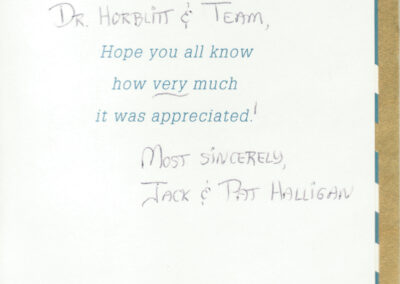 Dr. Horblitt & Team,
Hope you all know
how very much
it was appreciated.!
Most sincerely,
Jack & Pat Halligan